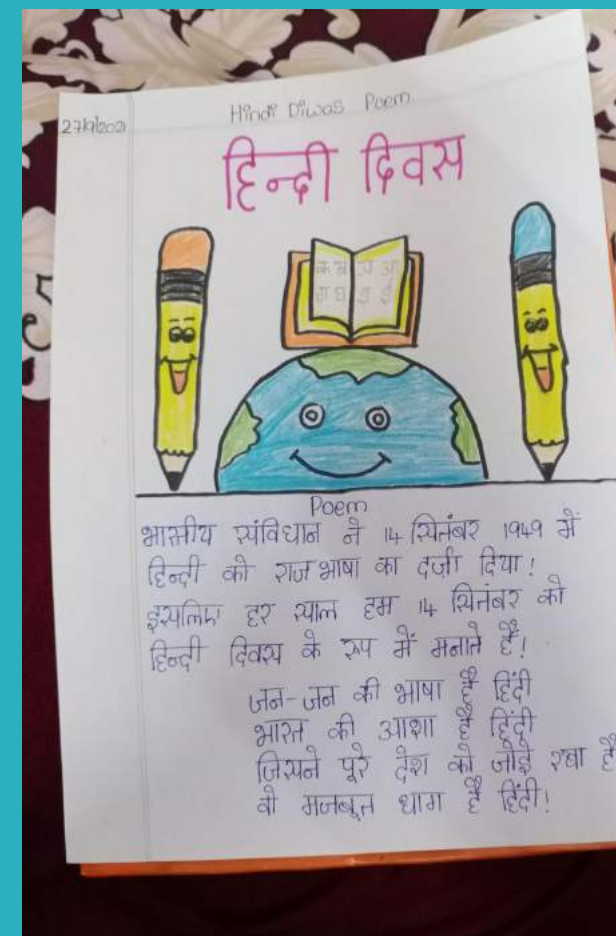 27/9/2021
Hindi Diwas Poem
हिन्दी दिवस
क ख अ आ
ग घ इ ई
Poem
भारतीय संविधान ने 14 सितंबर 1949 में
हिन्दी को राजभाषा का दर्ज़ा दिया!
इसलिए हर साल हम 14 सितंबर को
हिन्दी दिवस के रूप में मनाते हैं!
जन-जन की भाषा है हिंदी
भारत की आशा है हिंदी
जिसने पूरे देश को जोड़े रखा है
वो मजबूत धागा है हिंदी!